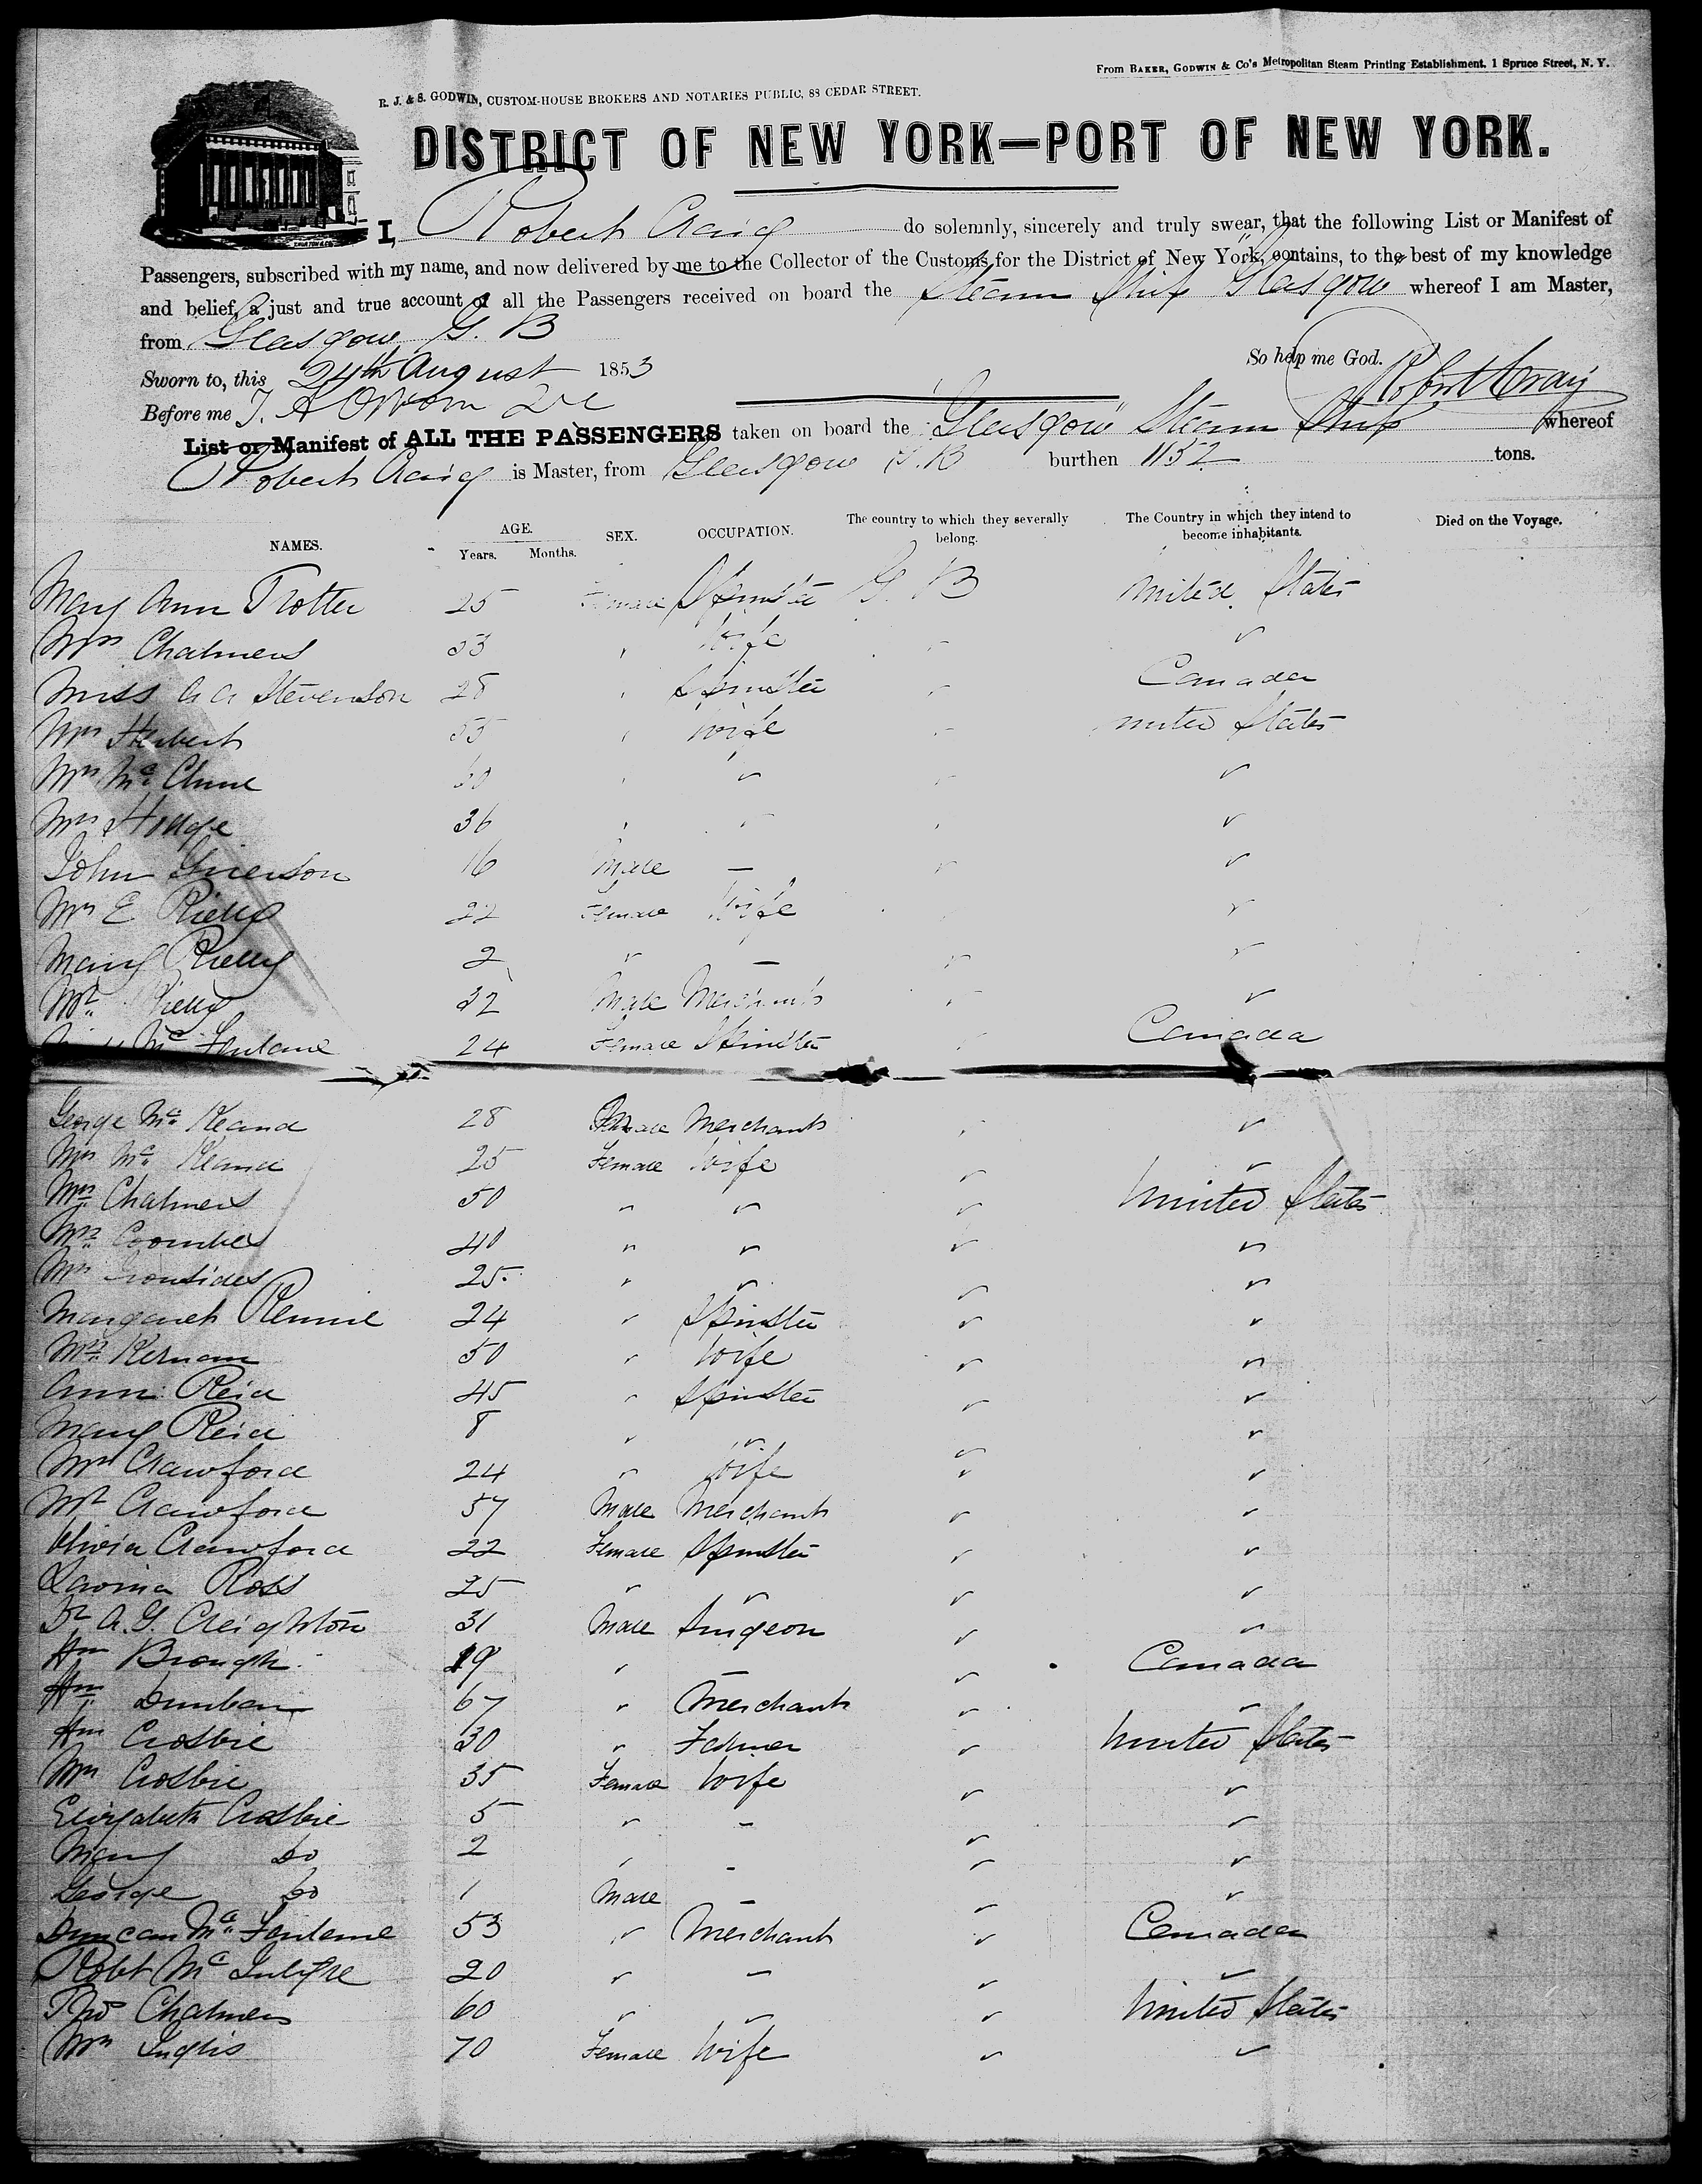 From BAKER, GODWIN & Co's Metropolitan Steam Printing Establishment. 1 Spruce Street, N. Y.
R. J. & S. GODWIN, CUSTOM-HOUSE BROKERS AND NOTARIES PUBLIC, 88 CEDAR STREET.
DISTRICT OF NEW YORK—PORT OF NEW YORK.
I, Robert Craig do solemnly, sincerely and truly swear, that the following List or Manifest of
Passengers, subscribed with my name, and now delivered by me to the Collector of the Customs for the District of New York, contains, to the best of my knowledge
and belief, a just and true account of all the Passengers received on board the Steam Ship "Glasgow" whereof I am Master,
from Glasgow G. B
So help me God.
Sworn to, this 24th August 1853 Robert Craig
Before me
List or Manifest of ALL THE PASSENGERS taken on board the "Glasgow" Steam Ship whereof
Robert Craig is Master, from Glasgow G. B burthen 1152 tons.
NAMES. AGE. Years. Months. SEX. OCCUPATION. The country to which they severally belong. The Country in which they intend to become inhabitants. Died on the Voyage.
Mary Ann Trotter 25 Female Spinster G. B United States
Mrs Chalmers 33 " Wife " "
Miss A A Stevenson 28 " Spinster " Canada
Mrs Herbert 55 " Wife " United States
Mrs Mc Clune " " " "
Mrs Hodge 36 " " " "
John Grierson 16 Male — " "
Mrs E Rielly 22 Female Wife " "
Mary Rielly 2 " — " "
Mr Rielly 32 Male Merchant " "
Mc Farlane 24 Female Spinster " Canada
George Mc Keand 28 Male Merchant " "
Mrs Mc Keand 25 Female Wife " "
Mrs Chalmers 50 " " " United States
Mrs Coombes 40 " " " "
Mrs Ironsides 25 " " " "
Margaret Rennie 24 " Spinster " "
Mrs Kernan 50 " Wife " "
Ann Reid 45 " Spinster " "
Mary Reid 8 " " " "
Mrs Crawford 24 " Wife " "
Mr Crawford 37 Male Merchant " "
Olivia Crawford 22 Female Spinster " "
Lavinia Ross 25 " " " "
Dr A. G. Creighton 31 Male Surgeon " "
Wm Brough 19 " — " Canada
Wm Dunbar 67 " Merchant " "
Wm Crosbie 30 " Farmer " United States
Mrs Crosbie 35 Female Wife " "
Elizabeth Crosbie 5 " — " "
Mary Do 2 " — " "
George Do 1 Male — " "
Duncan Mc Farlane 53 " Merchant " Canada
Robt Mc Intyre 20 " — " "
Thos Chalmers 60 " " " United States
Mrs Inglis 70 Female Wife " "